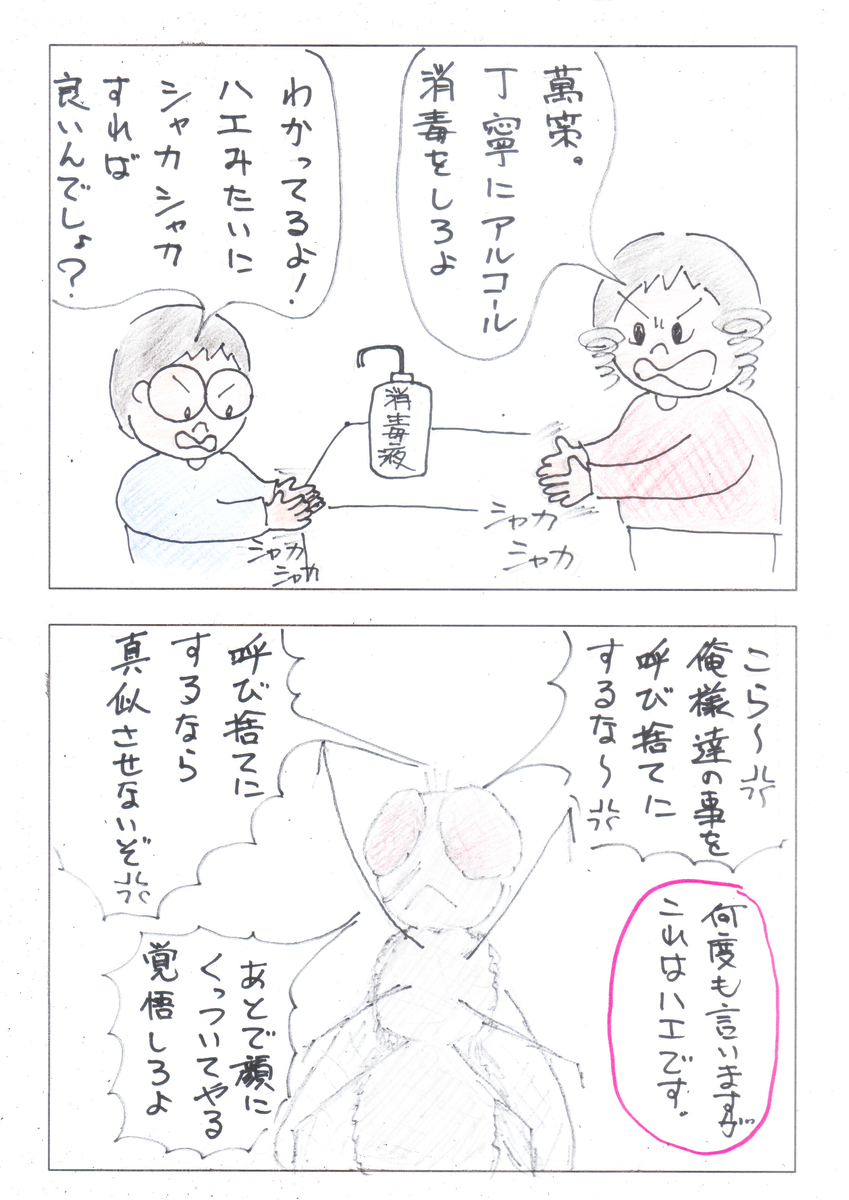 萬策。
丁寧にアルコール
消毒をしろよ
わかってるよ!
ハエみたいに
シャカシャカ
すれば
良いんでしょ?
消毒液
シャカ
シャカ
シャカ
シャカ
こら〜
俺様達の事を
呼び捨てに
するな〜
呼び捨てに
するなら
真似させないぞ
あとで顔に
くっついてやる
覚悟しろよ
何度も言いますが…
これはハエです。